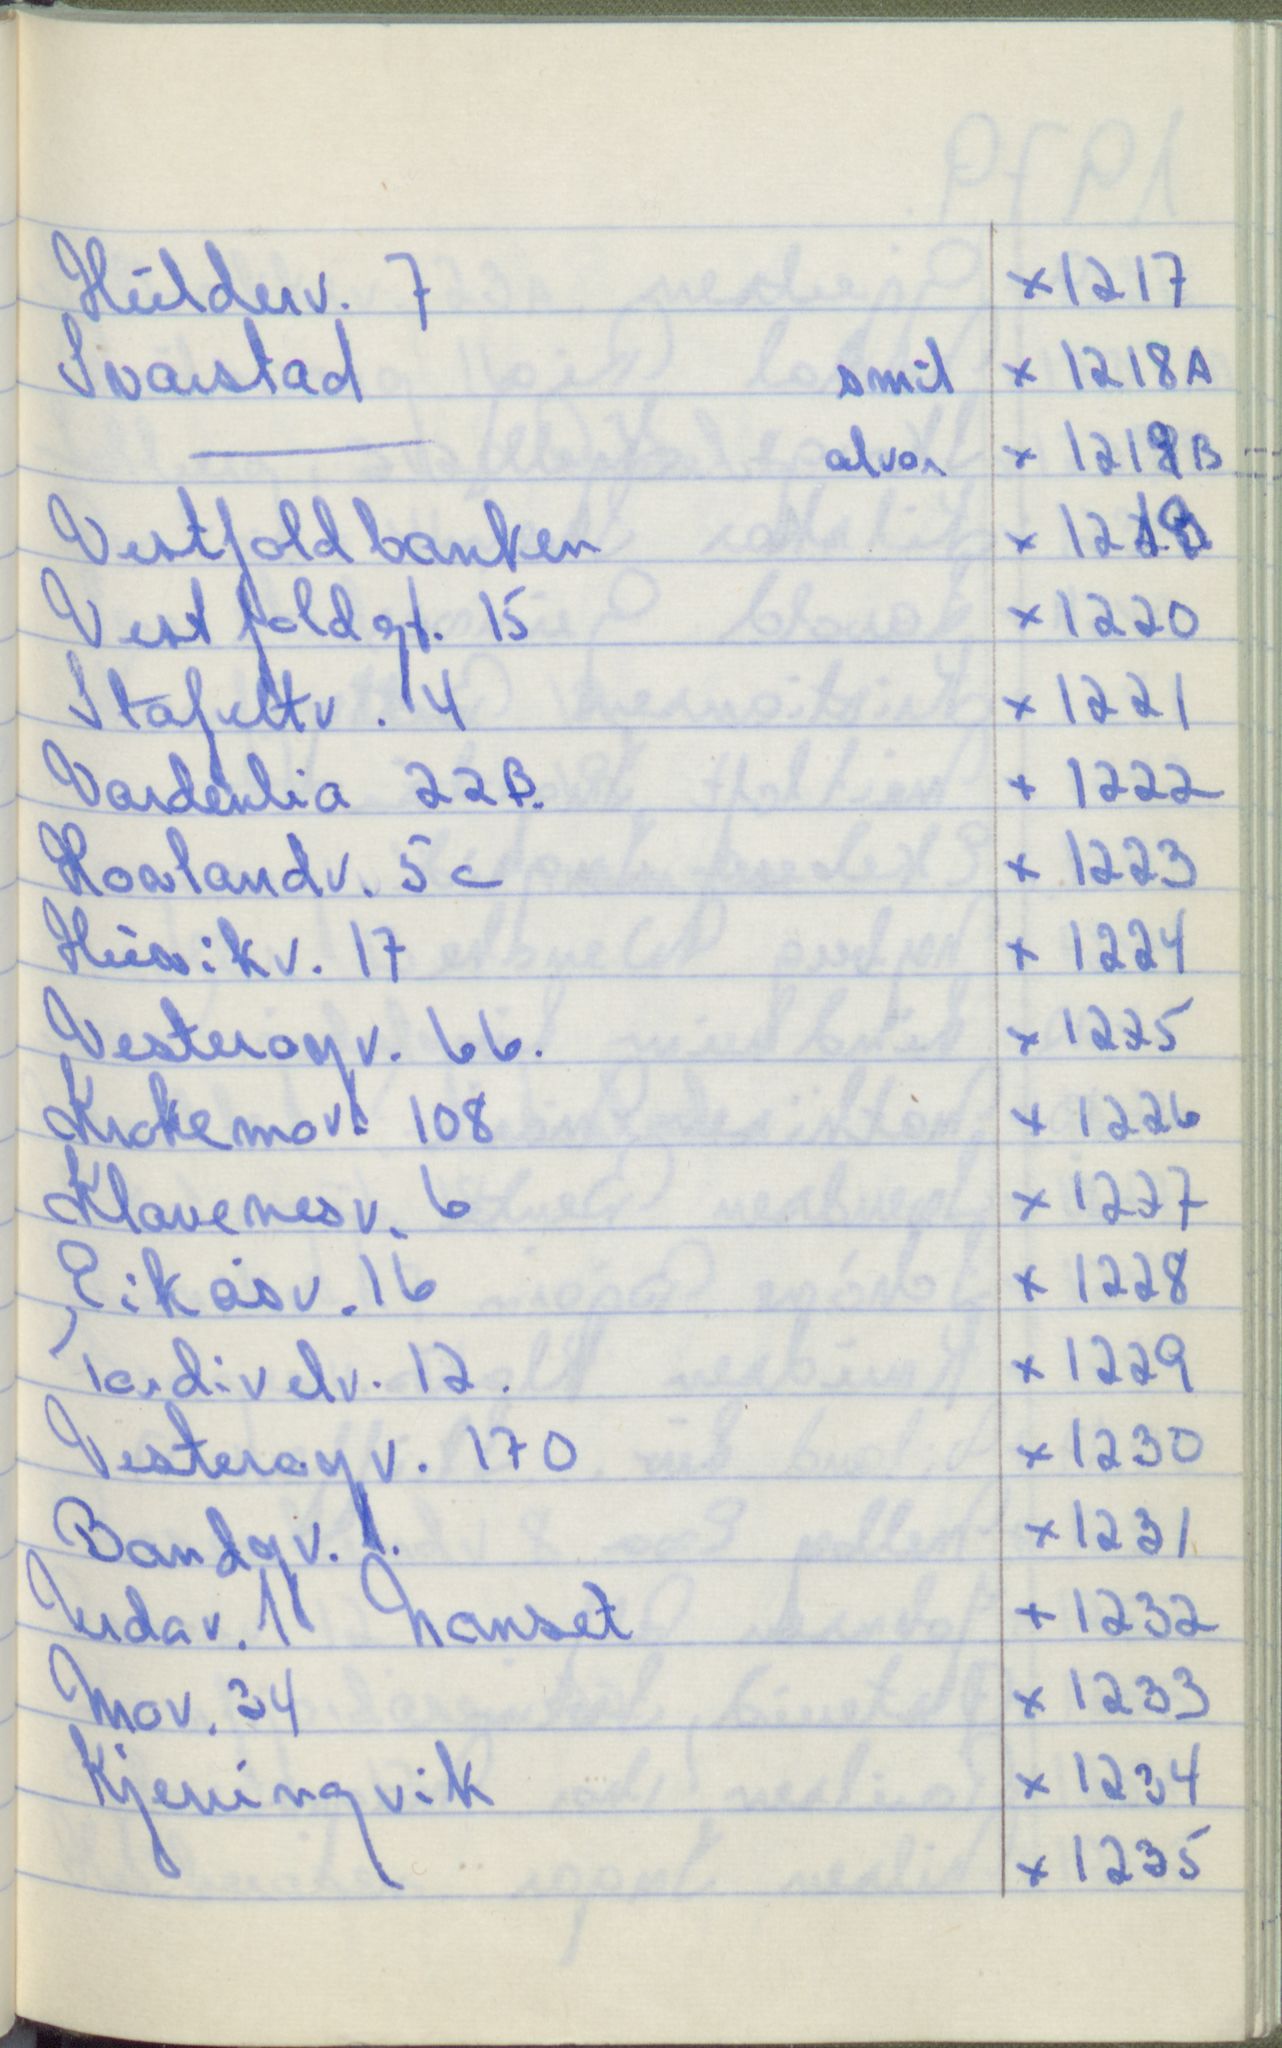 Hülderv. 7 x 1217
Svarstad smil x 1218A
——— alvor x 1218B
Vestfoldbanken x 1219
Vestfoldgt. 15 x 1220
Stafettv. 4 x 1221
Vardenlia 22B. x 1222
Haslandv. 5c x 1223
Hüsvikv. 17 x 1224
Vesterøyv. 66. x 1225
Krokemov. 108 x 1226
Klavenesv. 6 x 1227
Eikåsv. 16 x 1228
Tardivelv. 12. x 1229
Vesterøyv. 170 x 1230
Bandgv. 1. x 1231
Nanset x 1232
Mov. 34 x 1233
Kjerringvik x 1234
x 1235